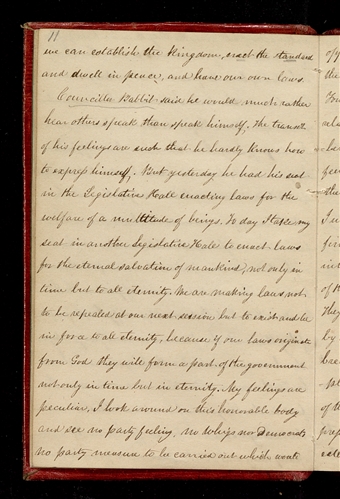 11
we can establish the Kingdom, erect the standard
and dwell in peace, and have our own laws.
Councillor Babbit said he would much rather
hear others speak than speak himself. The transit
of his feelings are such that he hardly knows how
to express himself. But yesterday he had his seat
in the Legislative Hall enacting laws for the
welfare of a multitude of beings. To day I take my
seat in another Legislative Hall to enact laws
for the eternal salvation of mankind, not only in
time but to all eternity. We are making laws not
to be repealed at our next session but to exist and be
in force to all eternity, because if our laws originate
from God they will form a part of the government
not only in time but in eternity. My feelings are
peculiar, I look around on this honorable body
and see no party feeling, no Whigs nor Democrats
no party measure to be carried out which wont